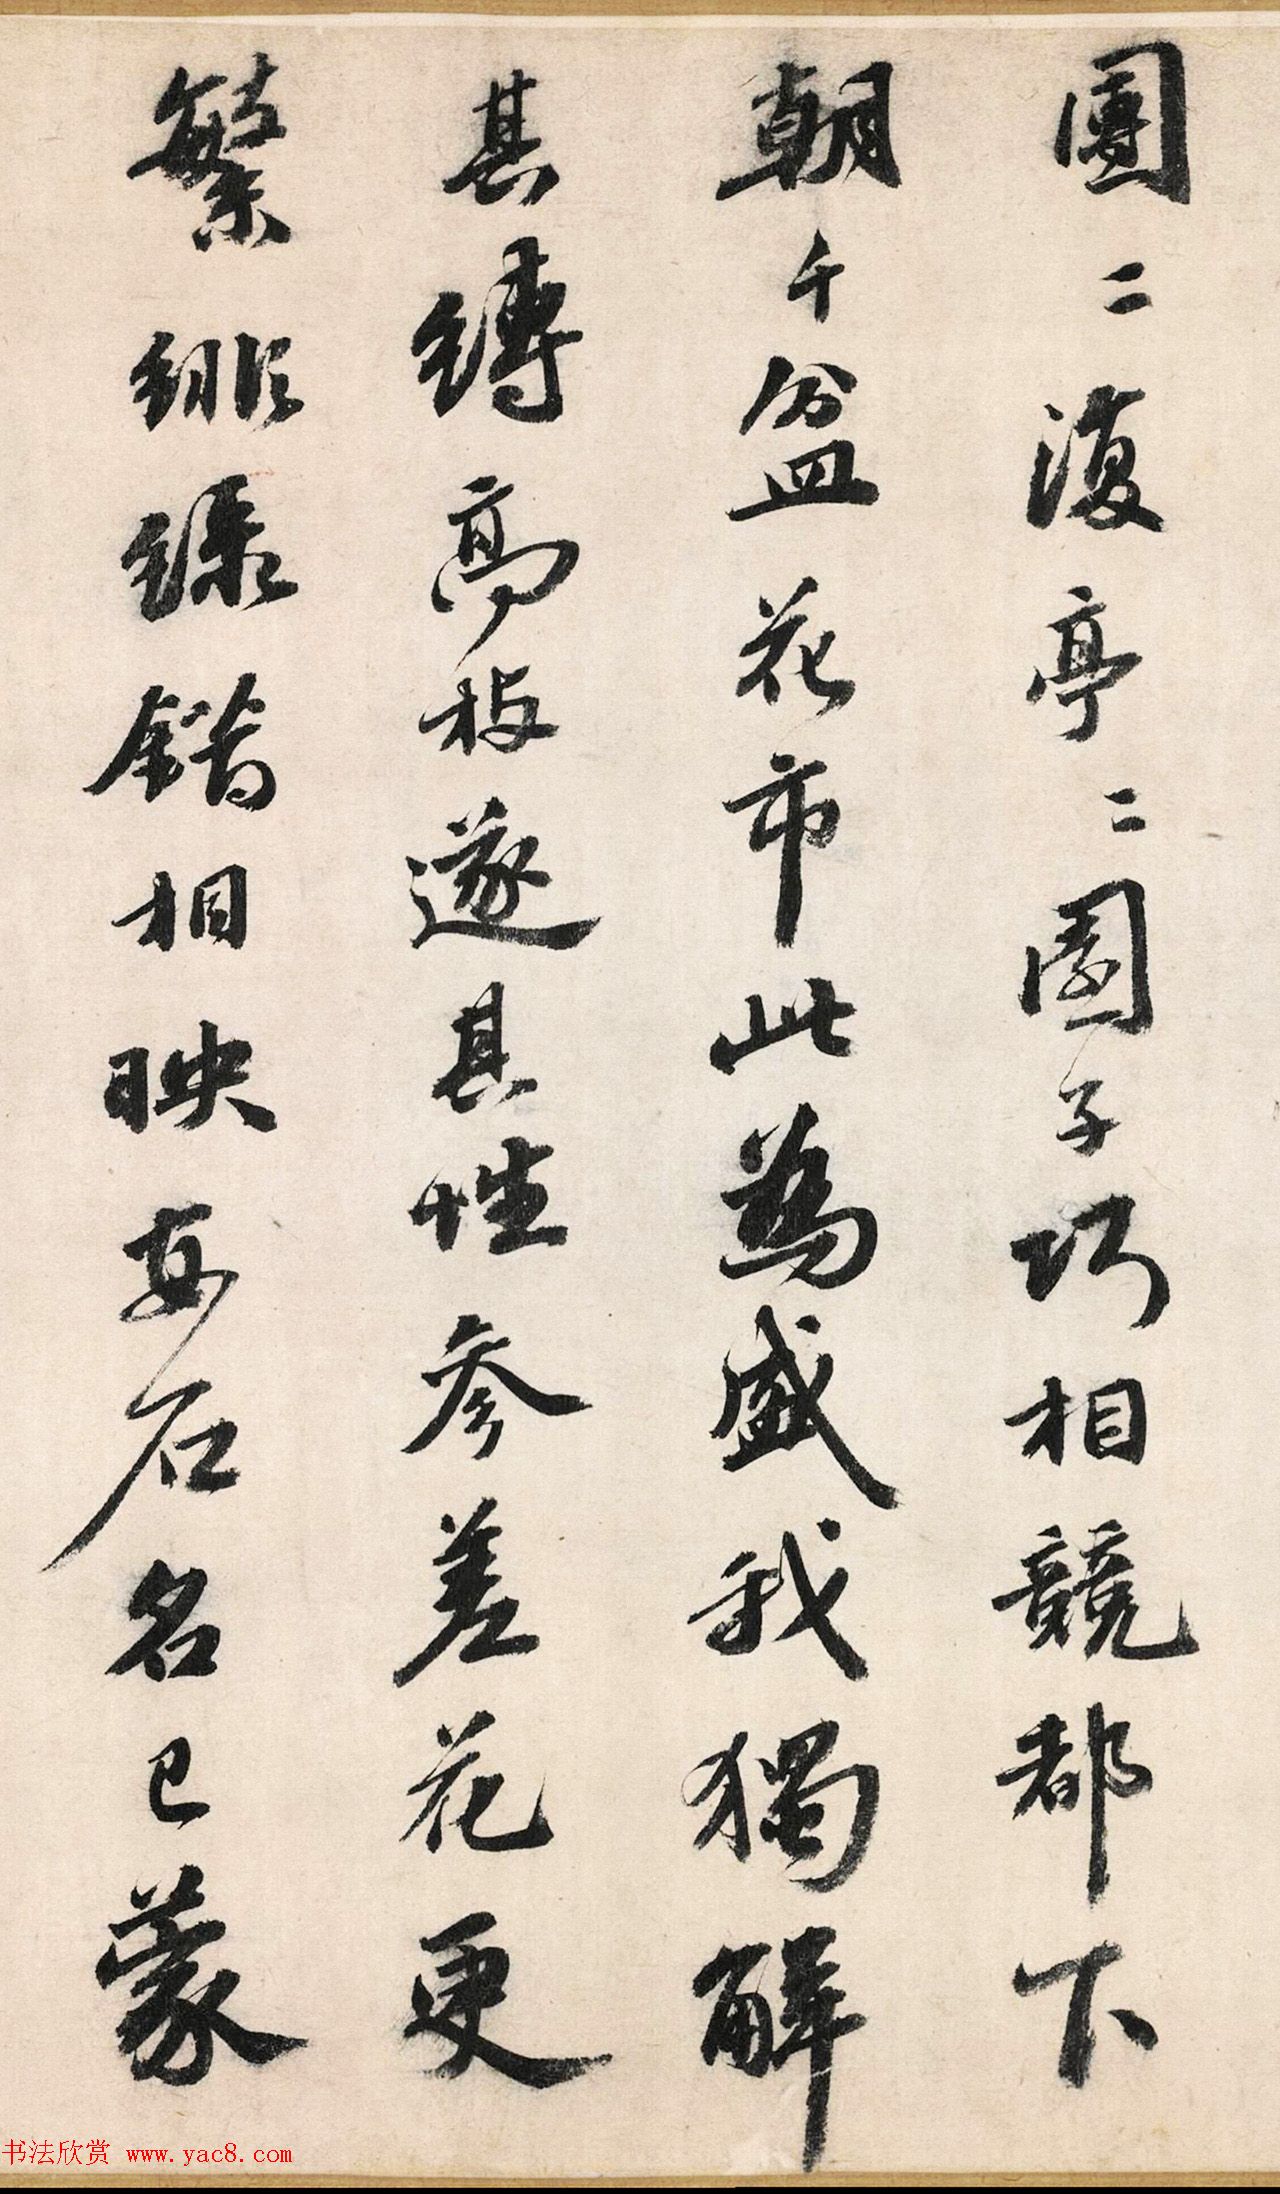 團二復亭二園子巧相競都下
朝千盆花市此為盛我獨解
其縛高枝遂其性參差花更
繁緋綠錯相映安石名已蒙
书法欣赏 www.yac8.com